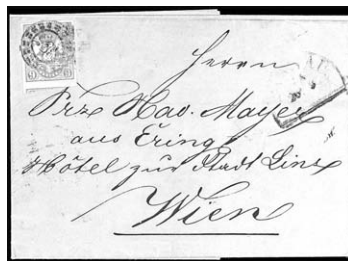 Herrn
Frz Xav. Mayer
aus Ering
Hôtel zur Stadt Linz
Wien